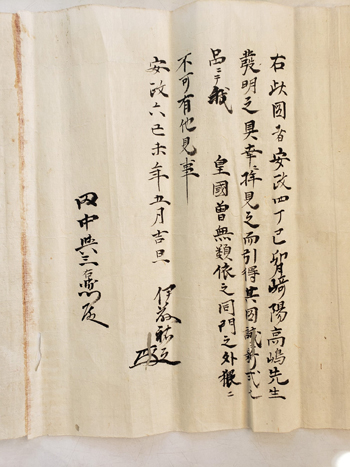 右此図者安政四丁巳崎陽高嶋先生
発明之具幸拝見之而引得其図誠新式之
品ニテ我 皇國曽無類依之同門之外猥ニ
不可有他見事
安政六己未年五月吉旦 伊
田中與三